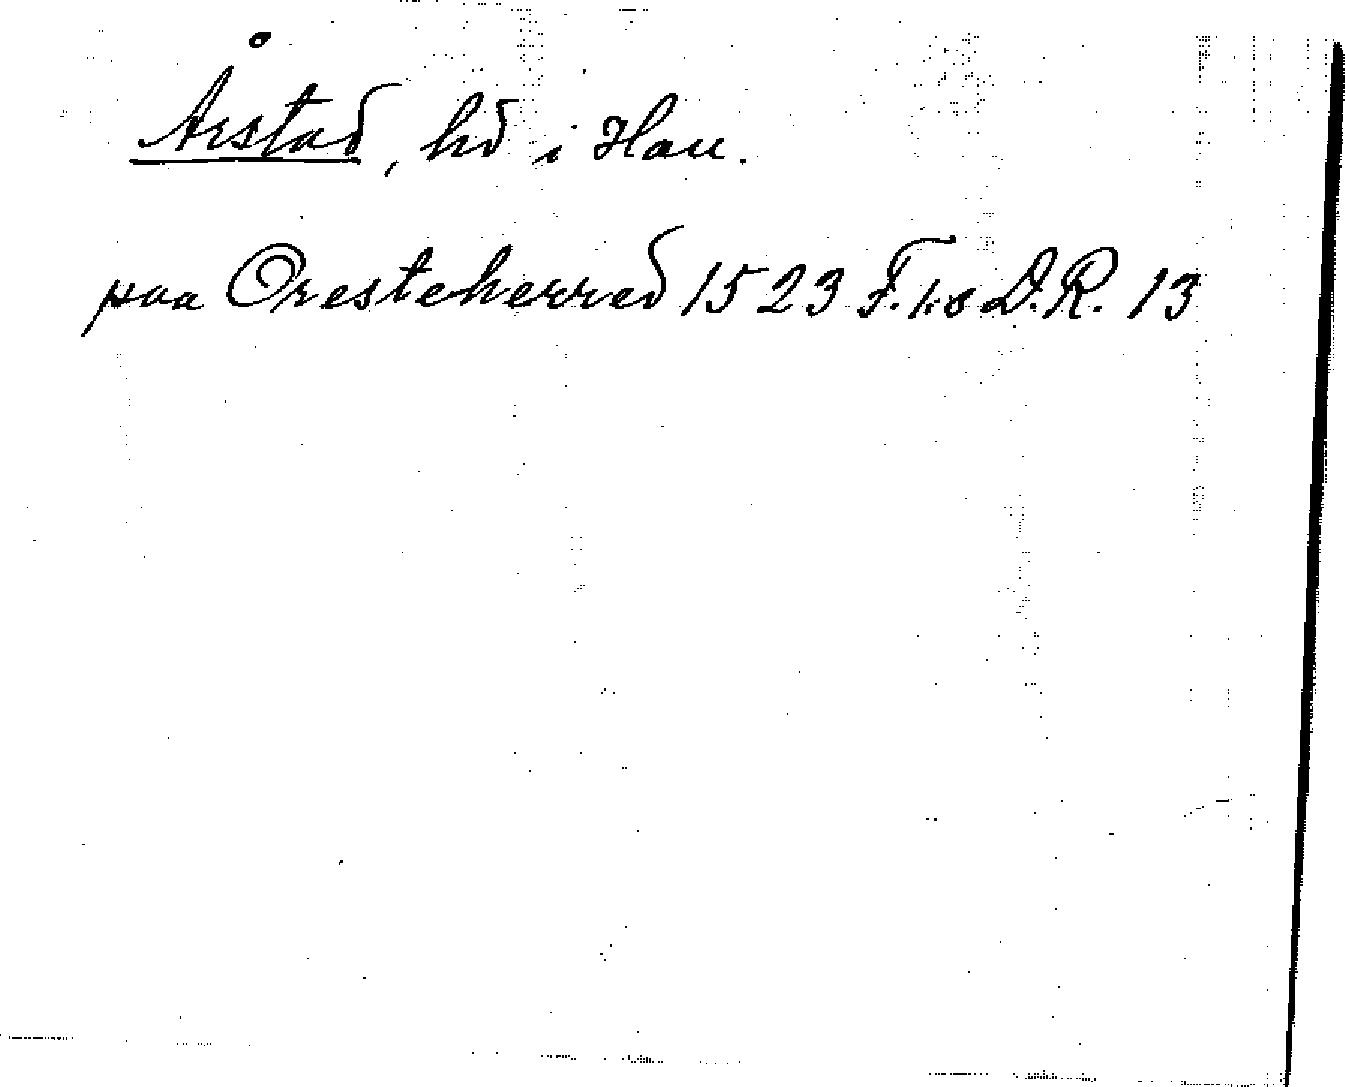 Årstad, hd i Hall.
paa Oresteherred 1523 F. 1.s D.R. 13